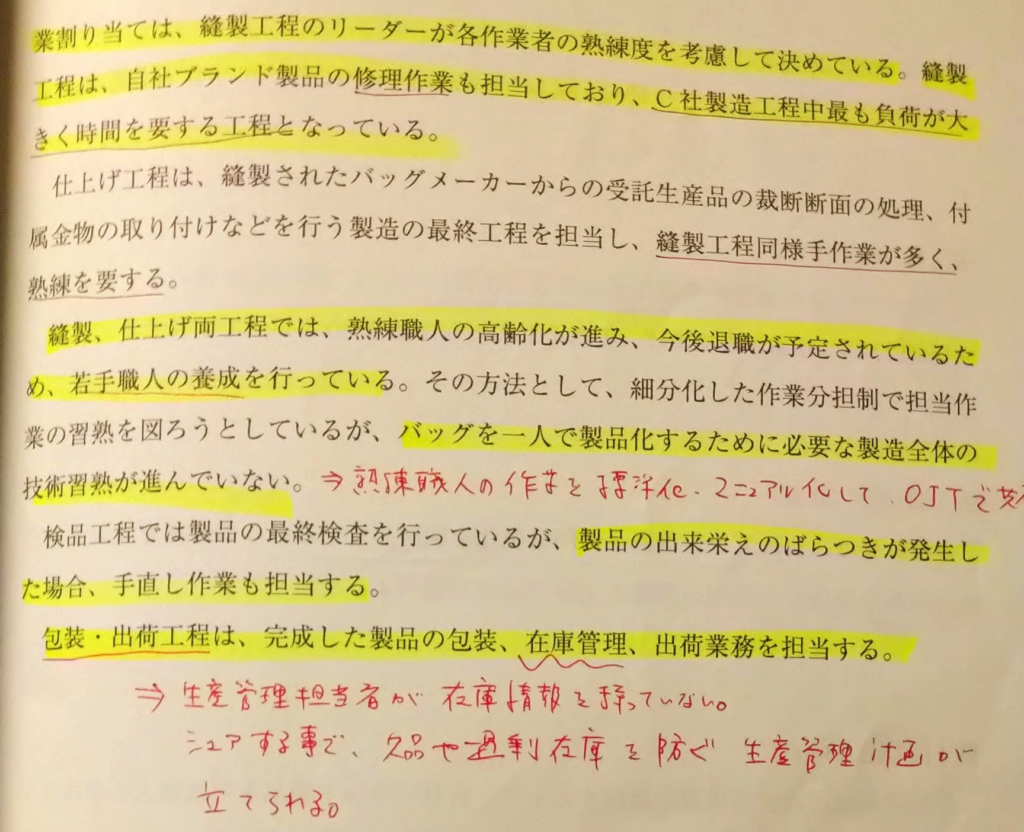 業割り当ては、縫製工程のリーダーが各作業者の熟練度を考慮して決めている。縫製
工程は、自社ブランド製品の修理作業も担当しており、C社製造工程中最も負荷が大
きく時間を要する工程となっている。
仕上げ工程は、縫製されたバッグメーカーからの受託生産品の裁断断面の処理、付
属金物の取り付けなどを行う製造の最終工程を担当し、縫製工程同様手作業が多く、
熟練を要する。
縫製、仕上げ両工程では、熟練職人の高齢化が進み、今後退職が予定されているた
め、若手職人の養成を行っている。その方法として、細分化した作業分担制で担当作
業の習熟を図ろうとしているが、バッグを一人で製品化するために必要な製造全体の
技術習熟が進んでいない。⇒熟練職人の作業を標準化・マニュアル化して、OJTで
検品工程では製品の最終検査を行っているが、製品の出来栄えのばらつきが発生し
た場合、手直し作業も担当する。
包装・出荷工程は、完成した製品の包装、在庫管理、出荷業務を担当する。
⇒生産管理担当者が在庫情報を持っていない。
シェアする事で、欠品や過剰在庫を防ぐ生産管理計画が
立てられる。